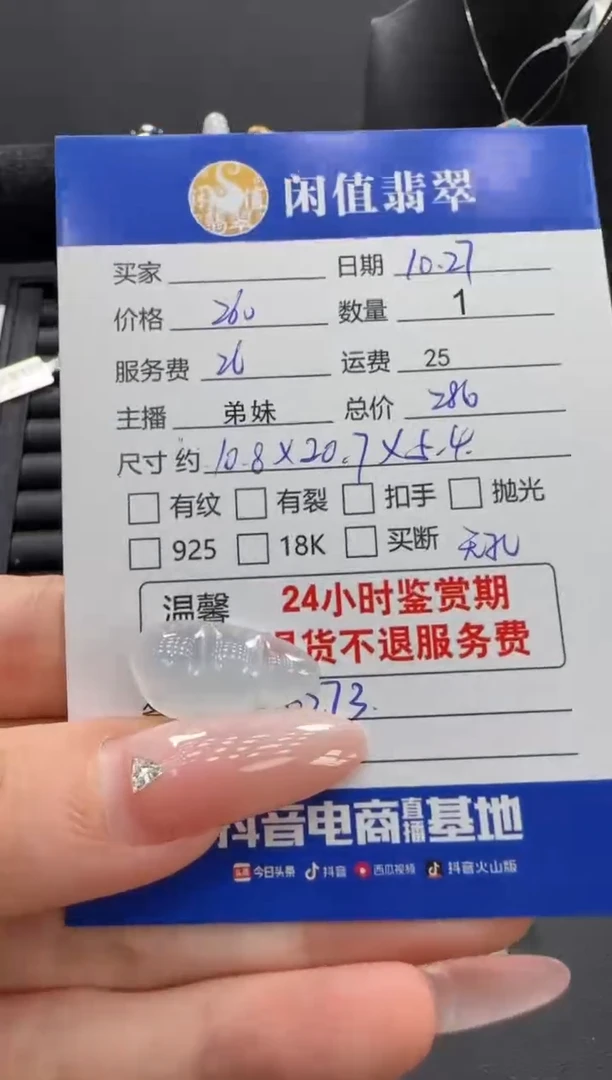 闲值翡翠
买家 日期 10.27
价格 260 数量 1
服务费 26 运费 25
主播 弟妹 总价 286
尺寸 约 10.8×20.7×5.4
有纹 有裂 扣手 抛光
925 18K 买断 无孔
温馨 24小时鉴赏期
货不退服务费
73.
抖音电商直播基地
今日头条 抖音 西瓜视频 抖音火山版